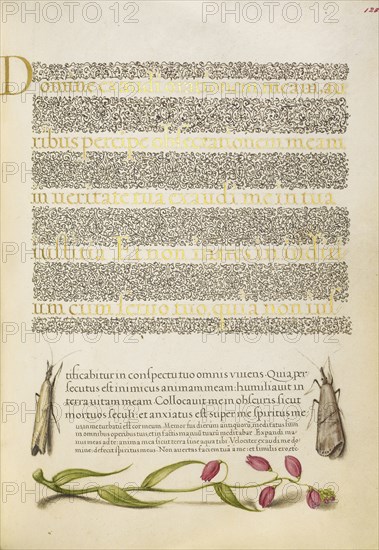 120
Domine exaudi orationem meam, au
ribus percipe obsecrationem meam
in veritate tua exaudi me in tua
iustitia. Et non intres in iudicium
cum servo tuo, quia non ius
tificabitur in conspectu tuo omnis vivens. Quia per
secutus est inimicus animam meam: humiliavit in
terra vitam meam Collocavit me in obscuris sicut
mortuos seculi: et anxiatus est super me spiritus me
us in me turbatū est cor meum. Memor fui dierum antiquorū, meditatus sum
in omnibus operibus tuis, et in factis manuū tuarū meditabar. Expandi ma
nus meas ad te: anima mea sicut terra sine aqua tibi. Velociter exaudi me do
mine: defecit spiritus meus. Non avertas faciem tuā a me: et similis ero